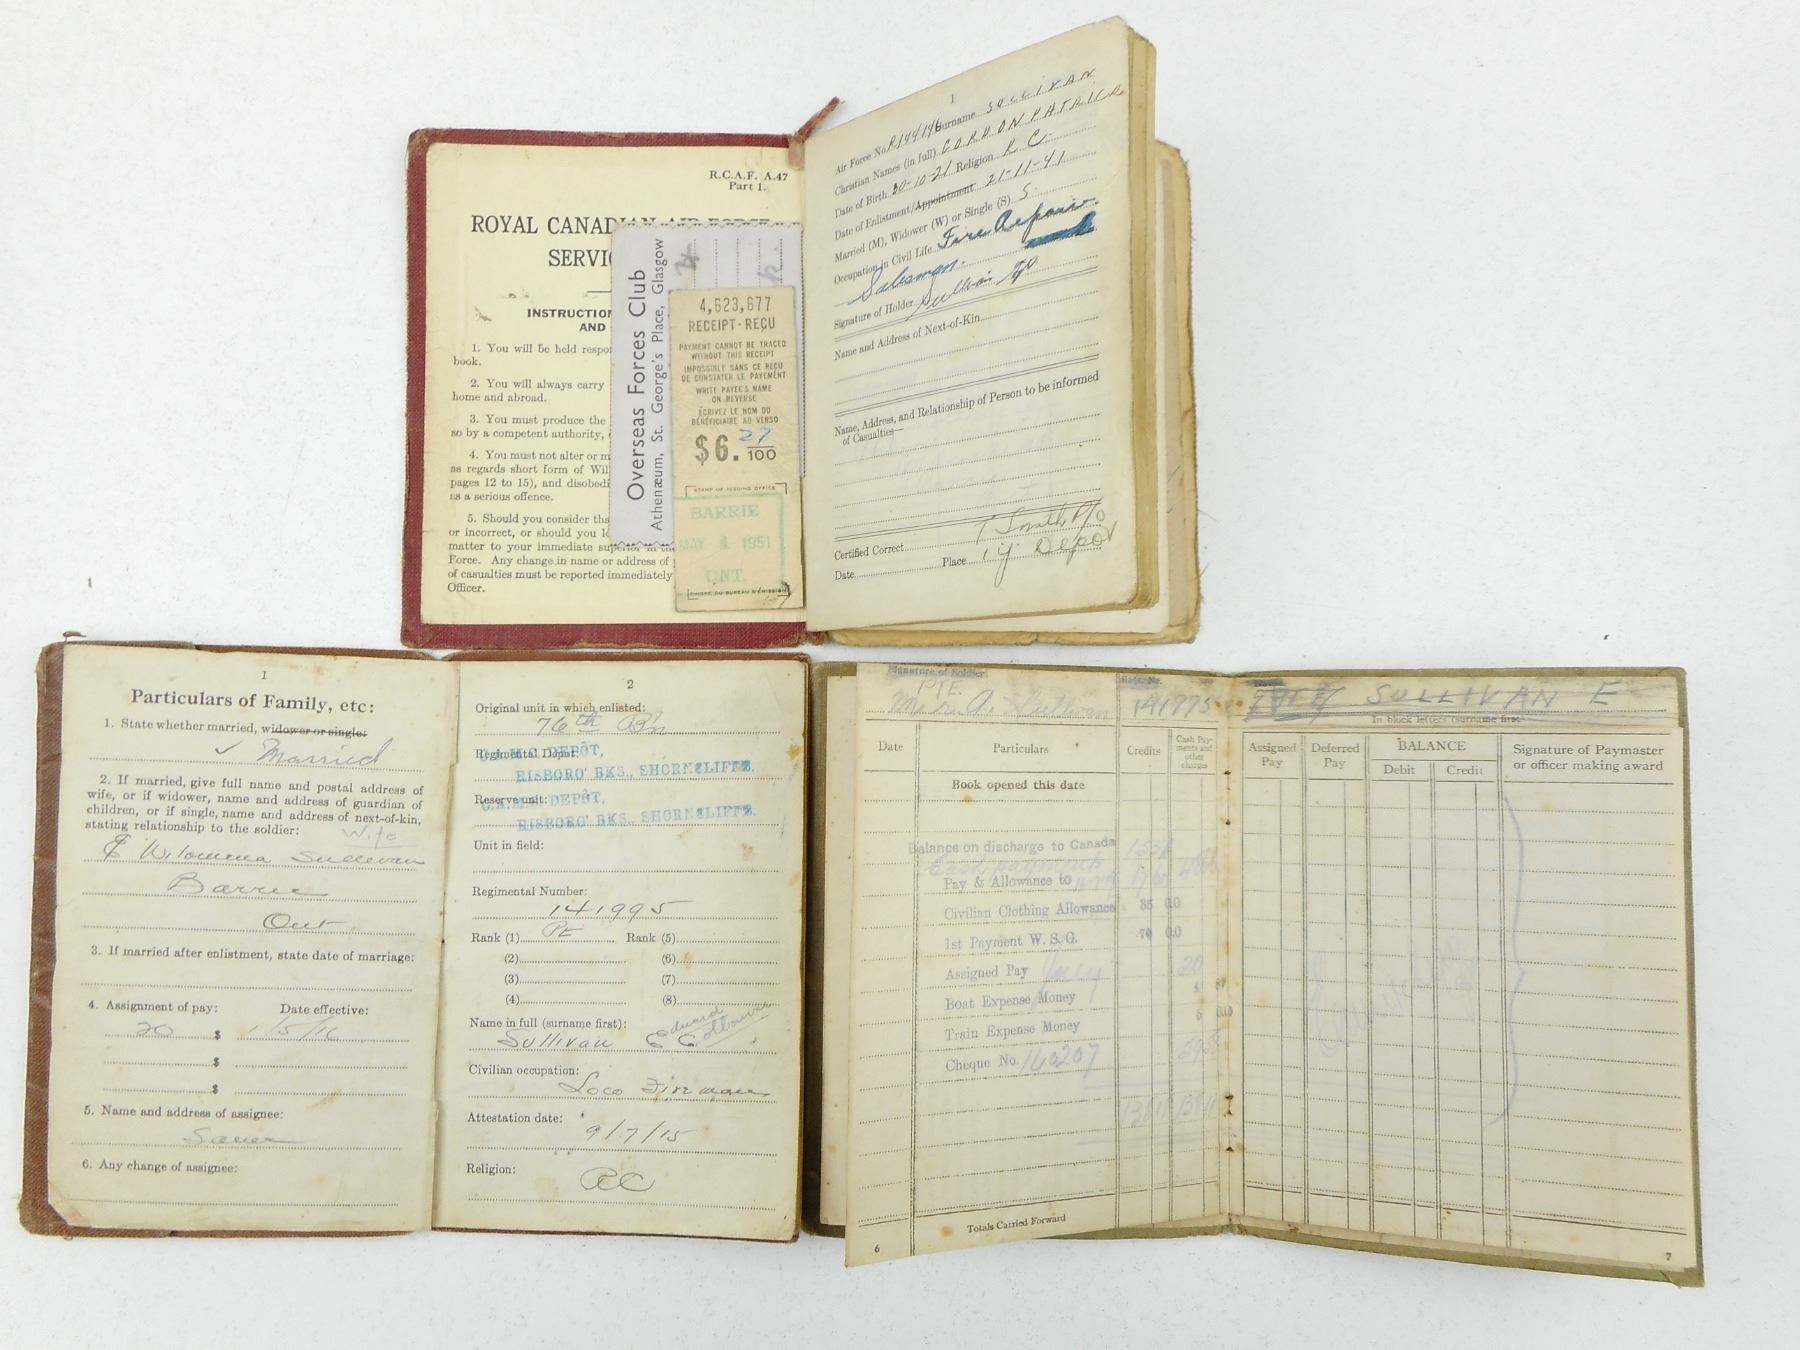 R.C.A.F. A.47
Part 1.
ROYAL CANADIAN AIR FORCE
SERVIC
INSTRUCTION
AND
1. You will be held respon
book.
2. You will always carry
home and abroad.
3. You must produce the
so by a competent authority,
4. You must not alter or m
as regards short form of Wil
pages 12 to 15), and disobedi
as a serious offence.
5. Should you consider tha
or incorrect, or should you lo
matter to your immediate superior in the
Force. Any change in name or address of
of casualties must be reported immediately
Officer.
Overseas Forces Club
Athenæum, St. George's Place, Glasgow
4,623,677
RECEIPT-REÇU
PAYMENT CANNOT BE TRACED
WITHOUT THIS RECEIPT
IMPOSSIBLE SANS CE REÇU
DE CONSTATER LE PAYEMENT
WRITE PAYEE'S NAME
ON REVERSE
ÉCRIVEZ LE NOM DU
BÉNÉFICIAIRE AU VERSO
$6. 27/100
STAMP OF ISSUING OFFICE
BARRIE
MAY 1951
ONT.
TIMBRE DU BUREAU D'ÉMISSION
1
Air Force No. R144146 Surname SULLIVAN
Christian Names (in full) GORDON PATRICK
Date of Birth 30-10-21 Religion R C
Date of Enlistment/Appointment 21-11-41
Married (M), Widower (W) or Single (S) S.
Occupation in Civil Life Fire Repair
Salesman.
Signature of Holder Sullivan GP
Name and Address of Next-of-Kin
Name, Address, and Relationship of Person to be informed
of Casualties—
Certified Correct T Smith P/O
Date Place 1 Y Depot
1
Particulars of Family, etc:
1. State whether married, widower or single:
Married
2. If married, give full name and postal address of
wife, or if widower, name and address of guardian of
children, or if single, name and address of next-of-kin,
stating relationship to the soldier: Wife
Sullivan
Barrie
Ont
3. If married after enlistment, state date of marriage:
4. Assignment of pay: Date effective:
20 $ 1/5/16
$
$
5. Name and address of assignee:
Same
6. Any change of assignee:
2
Original unit in which enlisted:
76th Bn
Regimental Depot:
C.A.M.C. DEPÔT,
RISBORO' BKS., SHORNCLIFFE.
Reserve unit:
C.A.M.C. DEPÔT,
RISBORO' BKS., SHORNCLIFFE.
Unit in field:
Regimental Number:
141995
Rank (1) Pte Rank (5)
(2) (6)
(3) (7)
(4) (8)
Name in full (surname first):
Sullivan E Edward
Civilian occupation:
Loco Fireman
Attestation date:
9/7/15
Religion:
RC
Signature of Soldier Regt. No.
PTE. Sullivan 141995
SULLIVAN E
In block letters (surname first)
Date Particulars Credits Cash Payments and other charges
Book opened this date
Balance on discharge to Canada
Cash payments
Pay & Allowance to
Civilian Clothing Allowance 35 00
1st Payment W. S. G. 70 00
Assigned Pay July 20
Boat Expense Money 4 87
Train Expense Money
Cheque No. 140207
Totals Carried Forward
6
Assigned Pay Deferred Pay BALANCE Signature of Paymaster or officer making award
Debit Credit
7